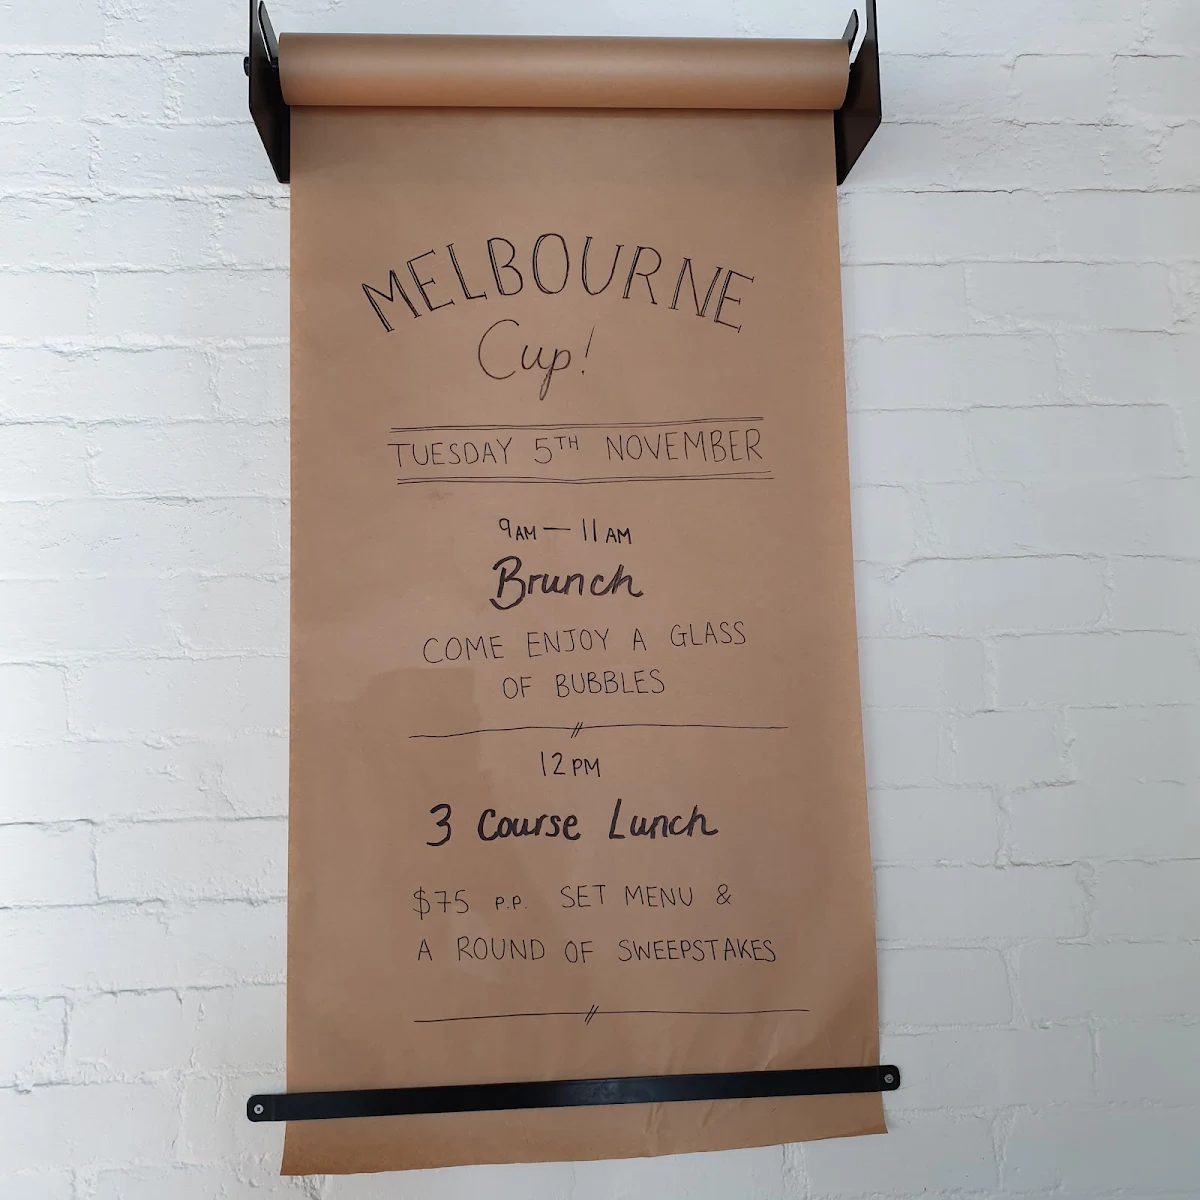 MELBOURNE
Cup!
TUESDAY 5TH NOVEMBER
9AM — 11AM
Brunch
COME ENJOY A GLASS
OF BUBBLES
12PM
3 Course Lunch
$75 P.P. SET MENU &
A ROUND OF SWEEPSTAKES